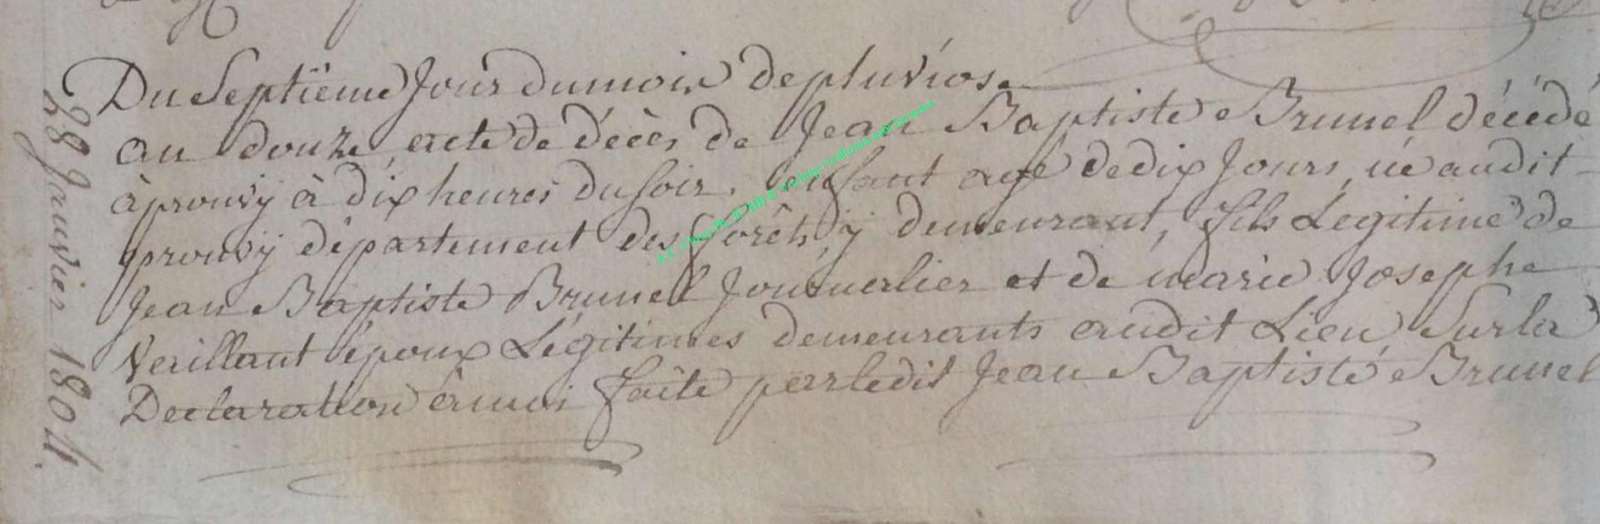 Du Septiême Jour du mois de pluviose
an douze, acte de décès de Jean Baptiste Brunel décédé
à prouvÿ à dix heures du soir, enfant agé de dix Jours, né audit
prouvÿ département des forêts, ÿ demeurant, fils Légitime de
Jean Baptiste Brunel Journalier et de marie Josephe
Vaillant époux Légitimes demeurants audit Lieu, Sur la
Declaration à moi faite par ledit Jean Baptiste Brunel
28 Janvier 1804.